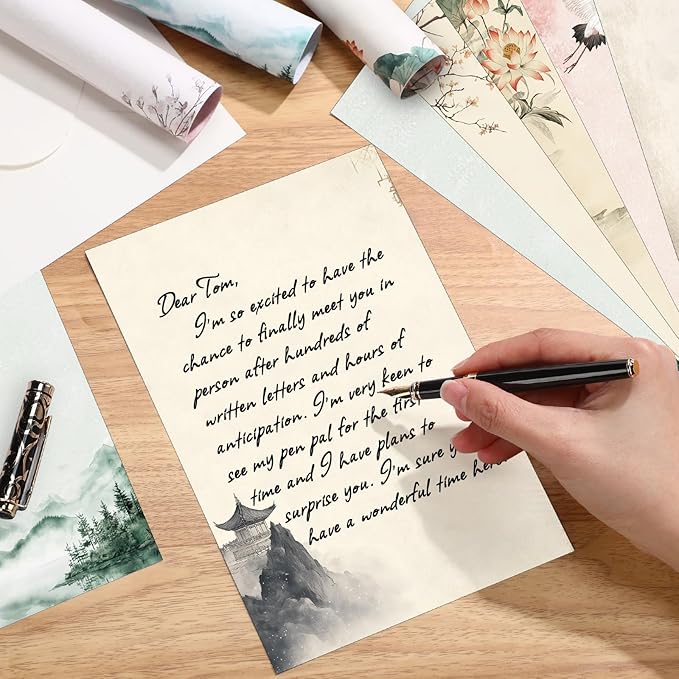 Dear Tom,
I'm so excited to have the
chance to finally meet you in
person after hundreds of
written letters and hours of
anticipation. I'm very keen to
see my pen pal for the first
time and I have plans to
surprise you. I'm sure
have a wonderful time